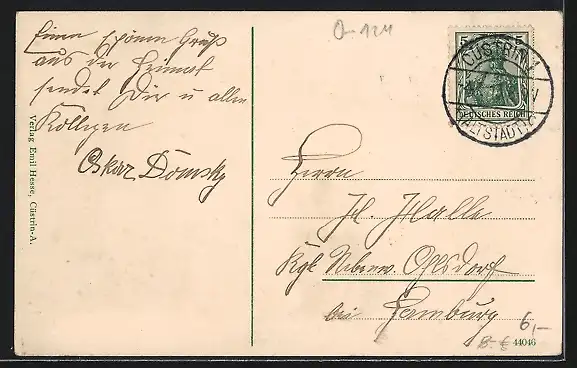 Einen schönen Gruß
aus der Heimat
sendet Dir u allen
Kollegen
Oskar Dömsky
Verlag Emil Hesse, Cüstrin-A.
0-124
5 5
CÜSTRIN 1
(ALTSTADT)
DEUTSCHES REICH
Herrn
H. Halle
Kgl Ohlsdorf
bei Hamburg
6,-
44046